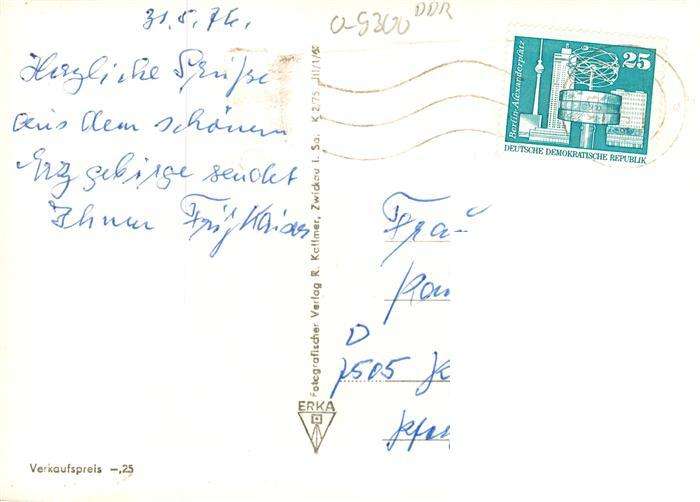 31.5.76.
Herzliche Grüße
aus dem schönen
Erzgebirge sendet
Ihnen Fritz Kaiser
O-9300 DDR
Berlin-Alexanderplatz
25
DEUTSCHE DEMOKRATISCHE REPUBLIK
Fotografischer Verlag R. Kallmer, Zwickau i. Sa. K 2/75 III/1/
ERKA
Frau
D
7505
Verkaufspreis –,25